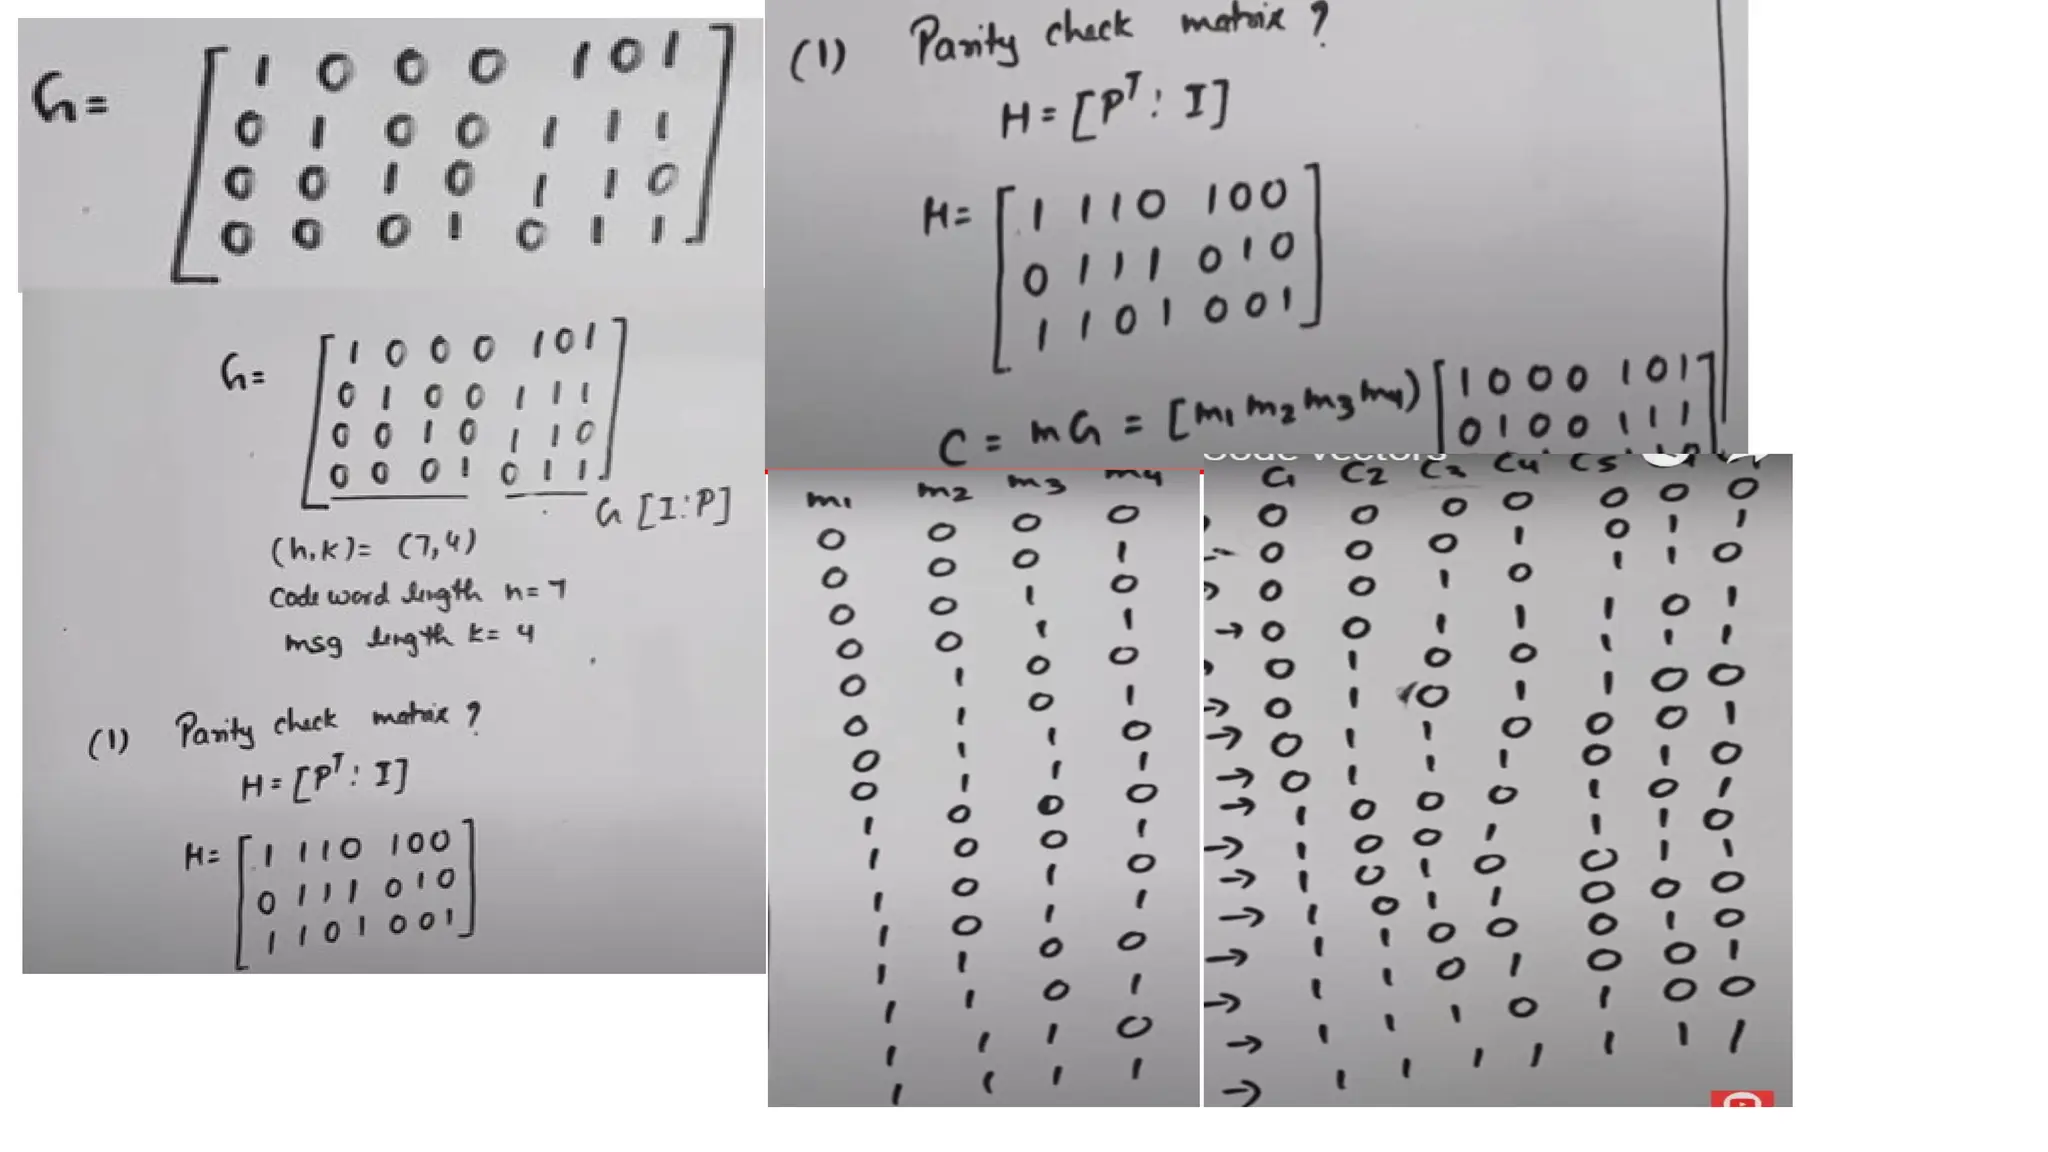 G =
1 0 0 0 1 0 1
0 1 0 0 1 1 1
0 0 1 0 1 1 0
0 0 0 1 0 1 1
G =
1 0 0 0 1 0 1
0 1 0 0 1 1 1
0 0 1 0 1 1 0
0 0 0 1 0 1 1
G [I:P]
(n,k) = (7,4)
Code word length n = 7
msg length k = 4
(1) Parity check matrix ?
H = [Pᵀ : I]
H =
1 1 1 0 1 0 0
0 1 1 1 0 1 0
1 1 0 1 0 0 1
(1) Parity check matrix ?
H = [Pᵀ : I]
H =
1 1 1 0 1 0 0
0 1 1 1 0 1 0
1 1 0 1 0 0 1
C = mG = [m1 m2 m3 m4)
1 0 0 0 1 0 1
0 1 0 0 1 1 1
m1 m2 m3 m4
0 0 0 0
0 0 0 1
0 0 1 0
0 0 1 1
0 1 0 0
0 1 0 1
0 1 1 0
0 1 1 1
1 0 0 0
1 0 0 1
1 0 1 0
1 0 1 1
1 1 0 0
1 1 0 1
1 1 1 0
1 1 1 1
Code vectors
C1 C2 C3 C4 C5
0 0 0 0 0 0 0
→ 0 0 0 1 0 1 1
0 0 1 0 1 1 0
→ 0 0 1 1 1 0 1
0 1 0 0 1 1 1
→ 0 1 0 1 1 0 0
→ 0 1 1 0 0 0 1
→ 0 1 1 1 0 1 0
→ 1 0 0 0 1 0 1
→ 1 0 0 1 1 1 0
→ 1 0 1 0 0 1 1
→ 1 0 1 1 0 0 0
→ 1 1 0 0 0 1 0
→ 1 1 0 1 0 0 1
→ 1 1 1 0 1 0 0
→ 1 1 1 1 1 1 1